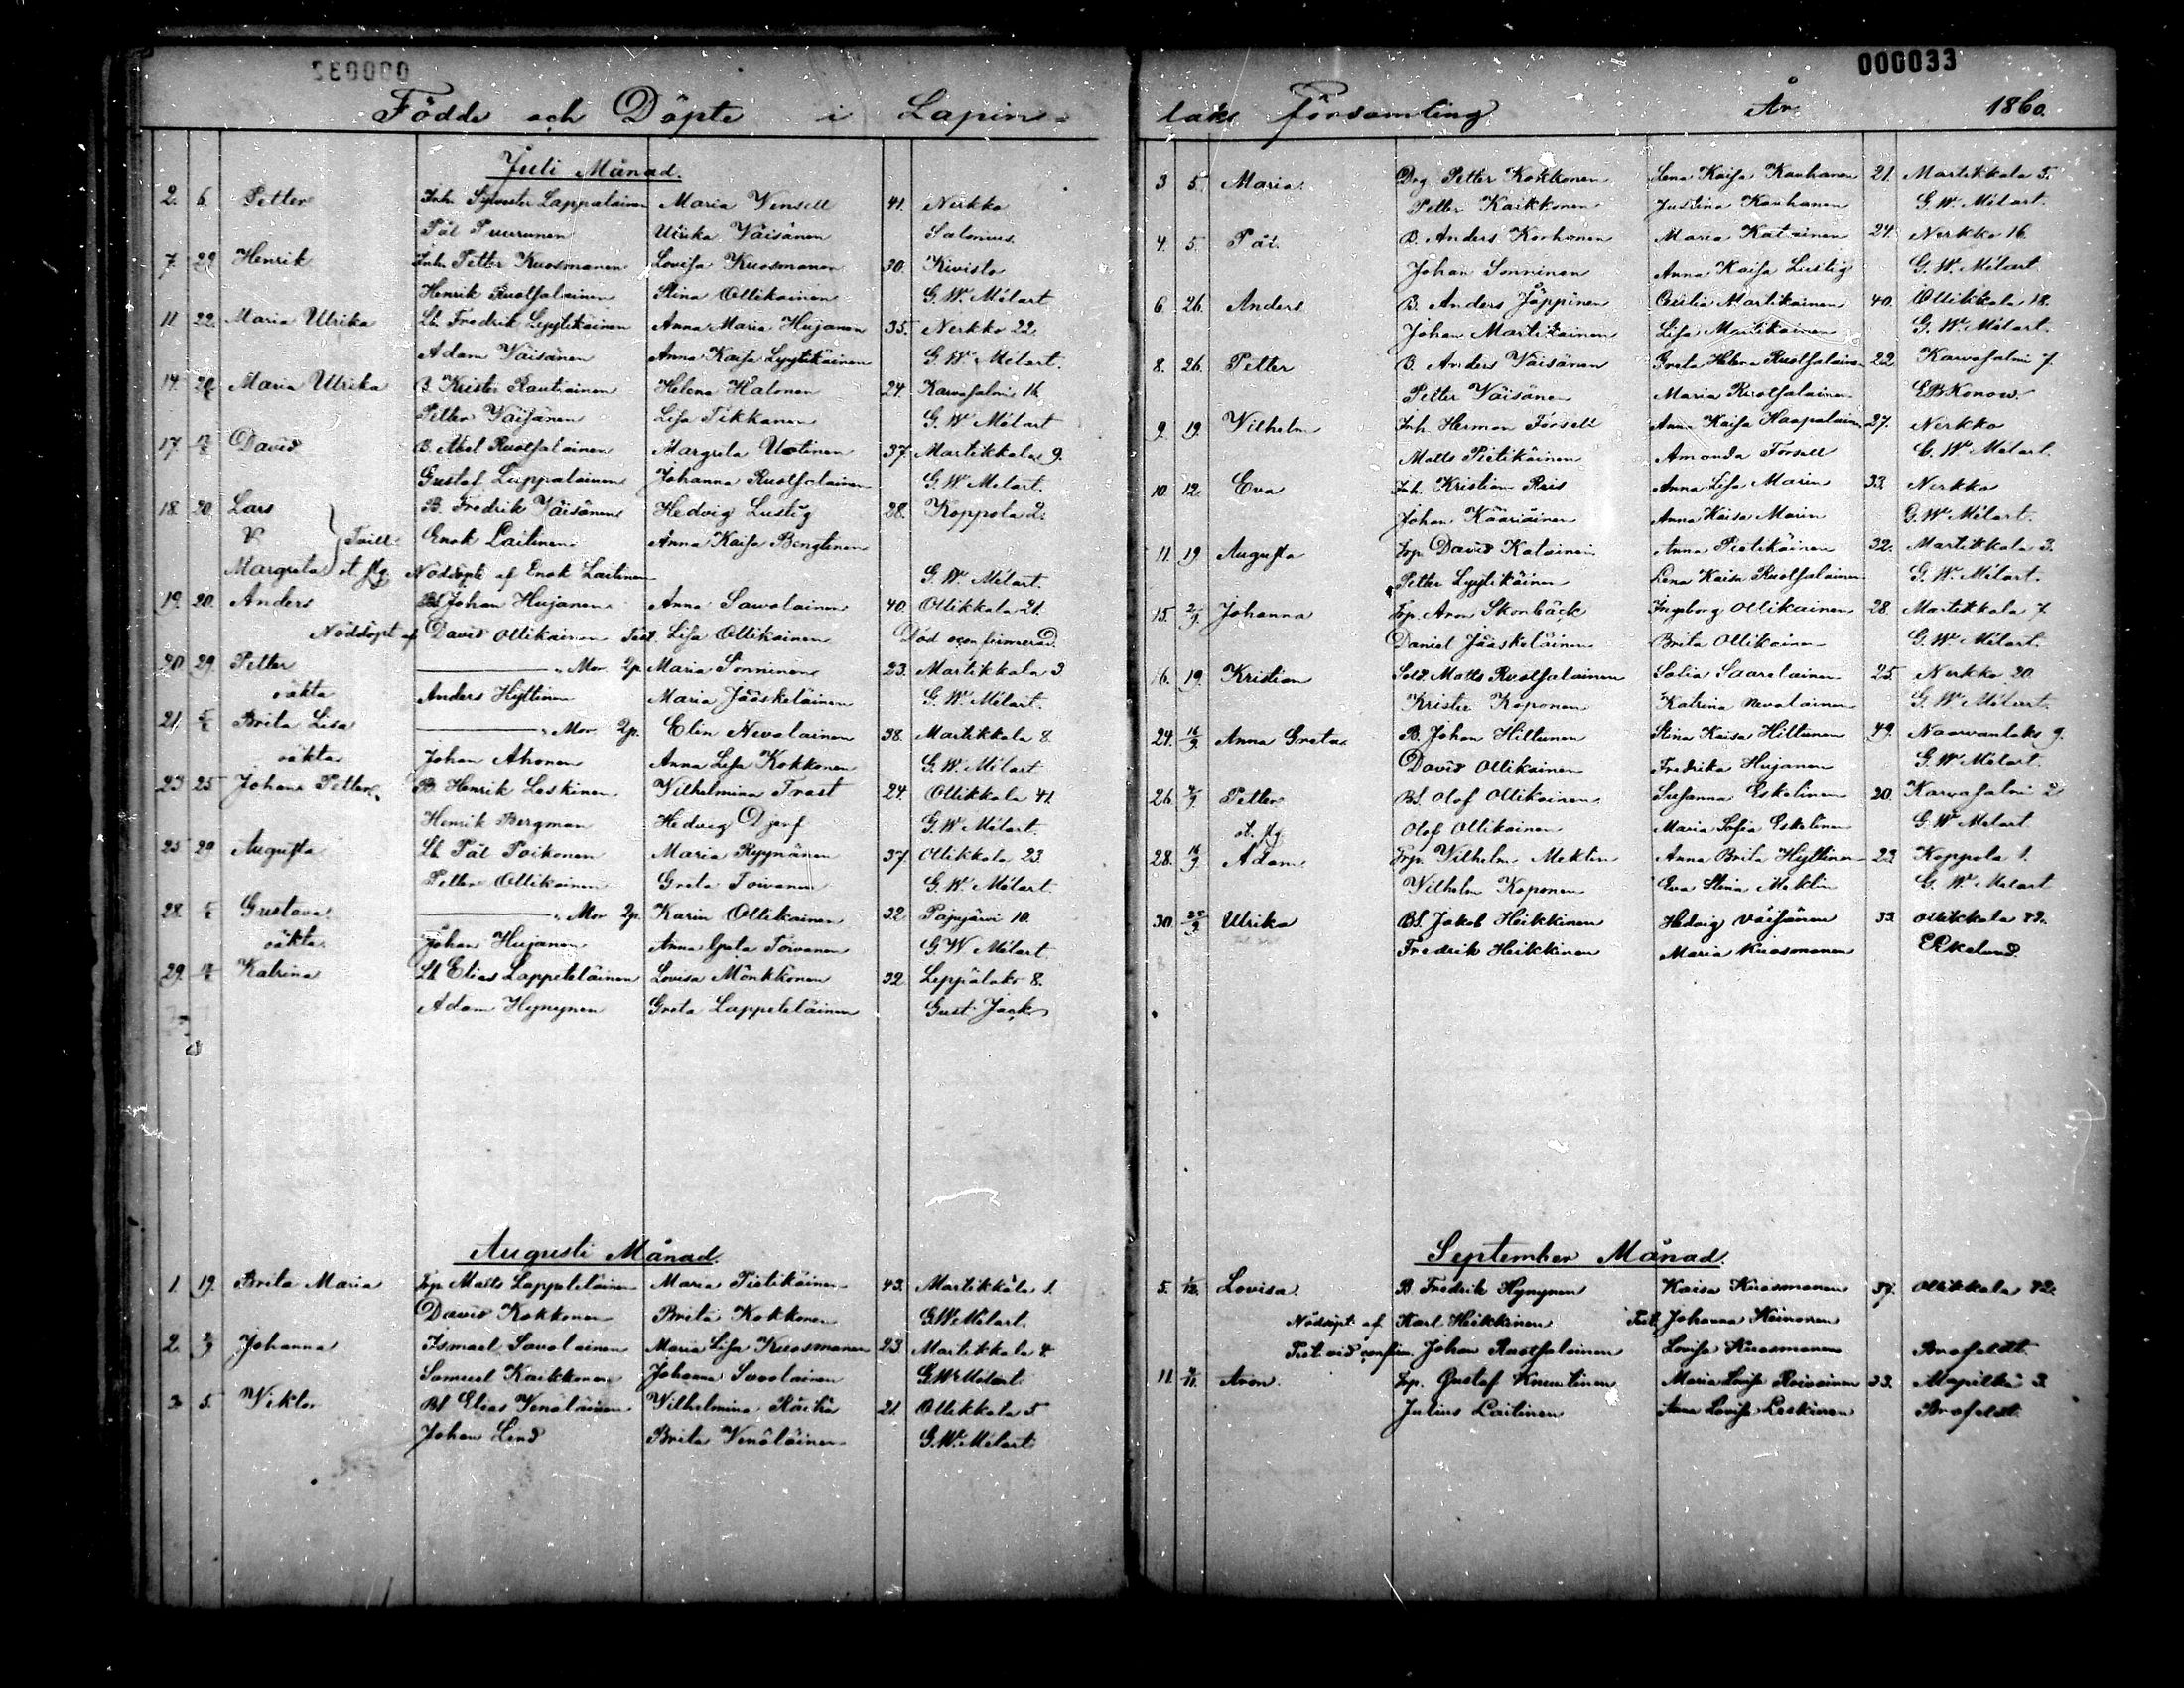 000032
Födde och Döpte i Lapin=
Juli Månad.
2. 6. Petter Inh. Sylvester Lappalainen Maria Vensell 41. Nerkko
Pål Puurunen Ulrika Väisänen Salonius.
7. 29 Henrik Inh. Petter Kuosmanen Lovisa Kuosmanen 30. Kivisto
Henrik Ruotsalainen Stina Ollikainen G.W. Mélart
11 22. Maria Ulrika Lb. Fredrik Lyytikäinen Anna Maria Hujanen 35. Nerkko 22.
Adam Väisänen Anna Kaisa Lyytikäinen G.W. Mélart.
14. Maria Ulrika B. Krister Rautiainen Helena Halonen 24. Karvasalmi 16
Petter Väisänen Lisa Tikkanen G.W Mélart
17. 12/8 David B. Abel Ruotsalainen Margreta Uotinen 37. Martikkala 9.
Gustaf Lappalainen Johanna Ruotsalainen G.W Mélart.
18. 20. Lars B. Fredrik Väisänen Hedvig Lustig 28. Koppola 2.
& Tvill. Enok Laitinen Anna Kaisa Bengtinen
Margreta Nöddöpte af Enok Laitinen G.W Mélart.
19. 20. Anders Bs Johan Hujanen Anna Savolainen 40. Ollikkala 21.
Nöddöpt af David Ollikainen Test. Lisa Ollikainen Död
20 29. Petter Mor 2p. Maria Sonninen 23. Martikkala 3
oäkta Anders Hyttinen Maria Jääskeläinen G.W. Mélart.
21. 5/8 Brita Lisa Mor 2p. Elin Nevalainen 38. Martikkala 8.
oäkta Johan Ahonen Anna Lisa Kokkonen G.W. Mélart
23 25 Johan Petter B. Henrik Leskinen Wilhelmina Trast 24. Ollikkala 41.
Henrik Bergman Hedvig Djerf G.W Mélart.
25 29 Augusta Lb Pål Poikonen Maria Ryynänen 37. Ollikkala 23.
Petter Ollikainen Greta Toivanen G.W. Mélart.
28. 5/8 Gustava Mor 2p. Karin Ollikainen 32. Pajujärvi 10.
oäkta. Johan Hujanen Anna Greta Toivanen G.W Mélart
29. 12/8 Katrina Lb Elias Lappeteläinen Lovisa Mönkkönen 32. Leppälaks 8.
Adam Hynynen Greta Lappeteläinen Gust. Jack
Augusti Månad.
1. 19. Brita Maria Trp. Matts Lappeteläinen Maria Pietikäinen 43. Martikkala 1.
David Kokkonen Brita Kokkonen G.W. Mélart.
2. 2/9 Johanna Ismael Savolainen Maria Lisa Kuosmanen 23 Martikkala 4.
Samuel Kaikkonen Johanna Savolainen G.W. Mélart.
3. 5. Viktor Bs Elias Venäläinen Wilhelmina Räihä 21. Ollikkala 5.
Johan Lind Brita Venäläinen G.W. Mélart.
000033
laks församling År 1860.
3 5 Maria Drg Petter Kokkonen Lena Kaisa Kauhanen 21. Martikkala 5.
Petter Kaikkonen Justina Kauhanen G.W. Mélart.
4. 5. Pål. B. Anders Korhonen Maria Katainen 24. Nerkko 16.
Johan Sonninen Anna Kaisa Lustig G.W. Mélart
6. 26. Anders B. Anders Jäppinen Cecilia Martikainen 40. Ollikkala 18.
Johan Martikainen Lisa Martikainen G.W. Mélart.
8. 26. Petter B. Anders Väisänen Greta Helena Ruotsalainen 22 Karvasalmi 7.
Petter Väisänen Maria Ruotsalainen EB Konow.
9. 19. Wilhelm Inh. Herman Forsell Anna Kaisa Haapalainen 27. Nerkko
Matts Pietikäinen Amanda Forsell G.W. Mélart.
10. 12. Eva Inh. Kristian Reis Anna Lisa Marin 33. Nerkko
Johan Kääriäinen Anna Kaisa Marin G.W. Mélart.
11. 19 Augusta Trp. David Katainen Anna Pietikäinen 32. Martikkala 3.
Petter Lyytikäinen Lena Kaisa Ruotsalainen G.W. Mélart.
15. 2/9 Johanna Trp. Aron Skonbäck Ingeborg Ollikainen 28. Martikkala 7
Daniel Jääskeläinen Brita Ollikainen G.W. Mélart.
16. 19. Kristian Sold. Matts Ruotsalainen Sofia Saarelainen 25 Nerkko 20
Krister Koponen Katrina Nevalainen G.W. Mélart.
24. 16/9 Anna Greta B. Johan Hiltunen Stina Kaisa Hiltunen 49. Naarvanlaks 9.
David Ollikainen Fredrika Hujanen G.W. Mélart.
26. Petter Bs. Olof Ollikainen Susanna Eskelinen 20. Karvasalmi 2
Olof Ollikainen Maria Sofia Eskelinen G.W. Mélart
28. 16/9 Adam Trp. Wilhelm Meklin Anna Brita Hyttinen 23 Koppola 1.
Wilhelm Koponen Eva Stina Meklin G.W. Mélart
30. 25/9 Ulrika Bs. Jakob Heikkinen Hedvig Väisänen 33. Ollikkala 42.
Fredrik Heikkinen Maria Kuosmanen Ekelund.
September Månad.
5. Lovisa B. Fredrik Hynynen Kaisa Kuosmanen 37. Ollikkala 42.
Nöddöpt. af Karl Heikkinen Test. Johanna Heinonen
Test. vid confirm. Johan Ruotsalainen Lovisa Kuosmanen Brofeldt.
11. Aron. Trp. Gustaf Knuutinen Maria Lovisa Roivainen 33. 3.
Julius Laitinen Anna Lovisa Leskinen Brofeldt.